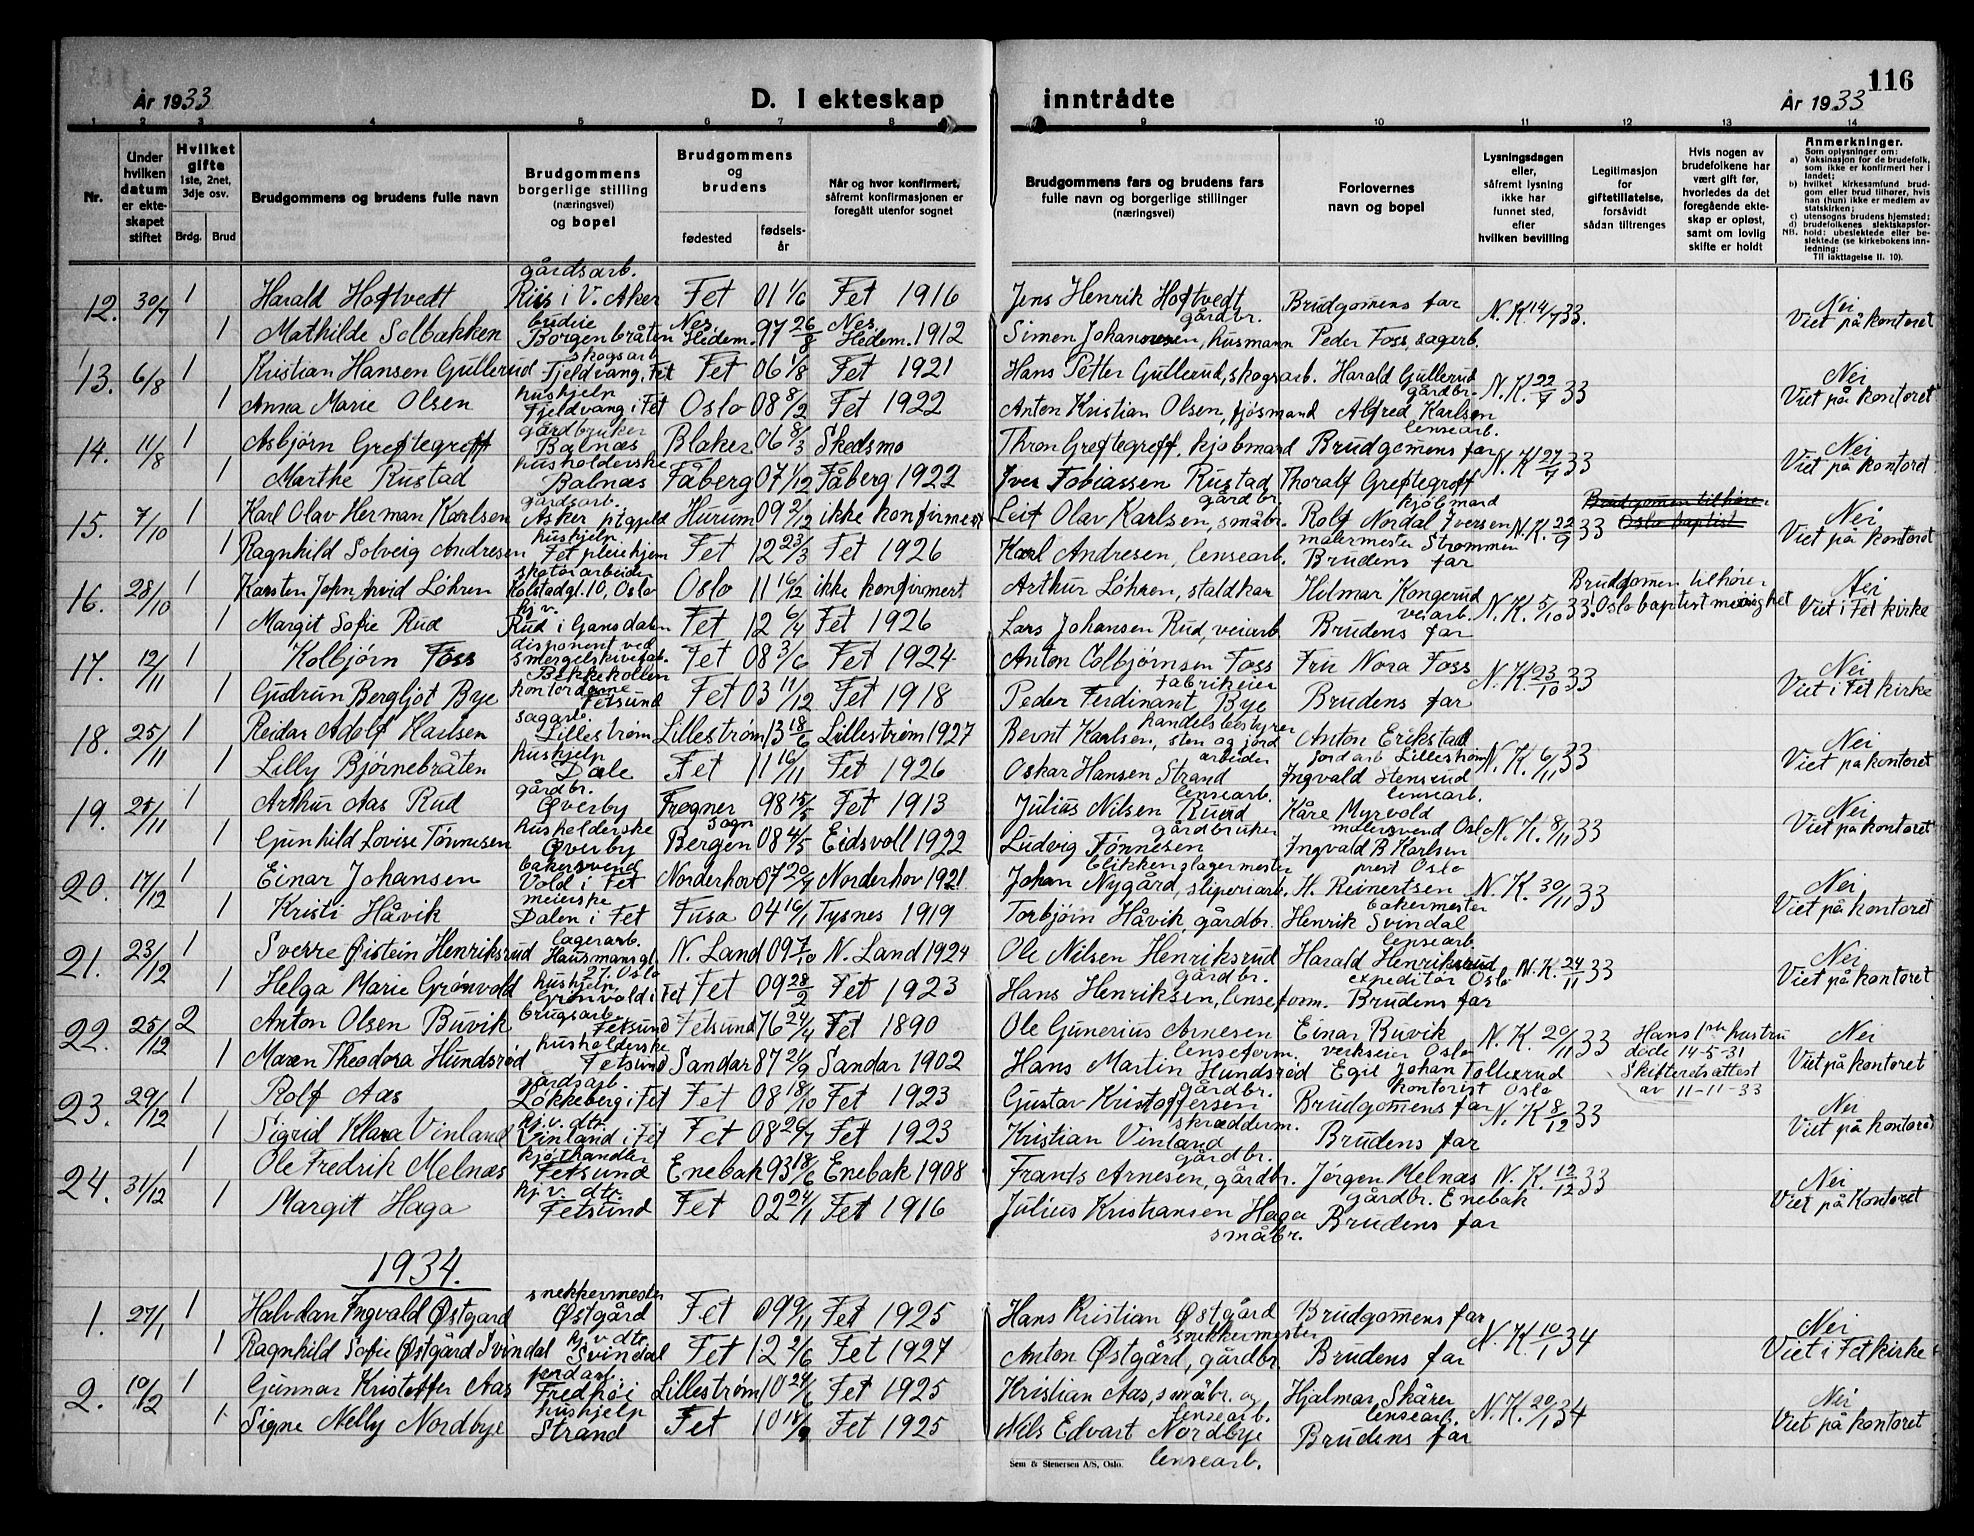 116
År 1933
D. I ekteskap inntrådte
År 1933
1 2 3 4 5 6 7 8 9 10 11 12 13 14
Nr.
Under hvilken datum er ekteskapet stiftet
Hvilket gifte 1ste, 2net, 3dje osv.
Brdg. Brud
Brudgommens og brudens fulle navn
Brudgommens borgerlige stilling (næringsvei) og bopel
Brudgommens og brudens
fødested fødselsår
Når og hvor konfirmert, såfremt konfirmasjonen er foregått utenfor sognet
Brudgommens fars og brudens fars fulle navn og borgerlige stillinger (næringsvei)
Forlovernes navn og bopel
Lysningsdagen eller, såfremt lysning ikke har funnet sted, efter hvilken bevilling
Legitimasjon for giftetillatelse, forsåvidt sådan tiltrenges
Hvis nogen av brudefolkene har vært gift før, hvorledes da det foregående ekteskap er opløst, samt om lovlig skifte er holdt
Anmerkninger.
Som oplysninger om:
a) Vaksinasjon for de brudefolk, som ikke er konfirmert her i landet;
b) hvilket kirkesamfund brudgom eller brud tilhører, hvis han (hun) ikke er medlem av statskirken;
c) utensogns brudens hjemsted;
d) brudefolkenes slektskapsforhold: ubeslektede eller beslektede (se kirkebokens innledning;
NB. Til iakttagelse II. 10).
12. 30/7 1 Harald Hoftvedt gårdsarb. Riis i V. Aker Fet 01 1/6 Fet 1916 Jens Henrik Hoftvedt gårdbr. Brudgomens far N.K. 14/7 33. Nei
1 Mathilde Solbakken budeie Borgenbråten Nes, Hedem. 97 26/8 Nes, Hedem. 1912 Simen Johannesen, husmann Peder Foss, sagarb. Viet på kontoret
13. 6/8 1 Kristian Hansen Gullerud skogsarb Fjeldvang, Fet Fet 06 1/8 Fet 1921 Hans Petter Gullerud, skogsarb. Harald Gullerud gårdbr. N.K. 22/7 33 Nei
1 Anna Marie Olsen hushjelp Fjeldvang i Fet Oslo 08 8/2 Fet 1922 Anton Kristian Olsen, fjøsmand Alfred Karlsen lensearb. Viet på kontoret
14. 11/8 1 Asbjørn Greftegreff gårdbruker Balnæs Blaker 06 8/3 Skedsmo Thron Greftegreff, kjøbmand Brudgomens far N.K. 27/7 33 Nei
1 Marthe Rustad husholderske Balnæs Fåberg 07 1/12 Fåberg 1922 Iver Tobiassen Rustad gårdbr. Thoralf Greftegreff kjøbmand Viet på kontoret
15. 7/10 1 Karl Olav Herman Karlsen gårdsarb. Asker prgjeld Hurum 09 2/12 ikke konfirmert Leif Olav Karlsen, småbr. Rolf Nordal Iversen malermester Strømmen N.K. 22/9 33 Brudgomen tilhører Oslo baptist Nei
1 Ragnhild Solveig Andresen hushjelp. Fet pleiehjem Fet 12 23/3 Fet 1926 Karl Andresen, lensearb. Brudens far Viet på kontoret
16. 28/10 1 Karsten John Løhren skotøiarbeider Kolstadgt. 10, Oslo Oslo 11 16/12 ikke konfirmert Arthur Løhren, staldkar Holmar Kongerud veiarb. N.K. 5/10 33. Brudgomen tilhører Oslo baptistmenighet Nei
1 Margit Sofie Rud hj. v. Rud i Gansdalen Fet 12 6/4 Fet 1926 Lars Johansen Rud, veiarb. Brudens far Viet i Fet kirke
17. 12/11 1 Kolbjørn Foss disponent ved smergelskivefab. Bekkekollen Fet 08 3/6 Fet 1924 Anton Colbjørnsen Foss fabrikeier Fru Nora Foss N.K. 23/10 33 Nei
1 Gudrun Bergljot Bye kontordame Fetsund Fet 03 11/12 Fet 1918 Peder Ferdinant Bye handelsbestyrer Brudens far Viet i Fet kirke
18. 25/11 1 Reidar Adolf Karlsen sagarb. Lillestrøm Lillestrøm 13 18/6 Lillestrøm 1927 Bernt Karlsen, sten og jord arbeider Anton Erikstad Jordarb Lillestrøm N.K. 6/11 33 Nei
1 Lilly Bjørnebråten hushjelp Dale Fet 11 16/11 Fet 1926 Oskar Hansen Strand lensearb. Ingvald Stensrud lensearb. Viet på kontoret
19. 25/11 1 Arthur Aas Rud gårdbr. Øverby Frogner sogn 98 15/5 Fet 1913 Julius Nilsen Ruud gårdbruker Kåre Myrvold malersvend Oslo N.K. 8/11 33 Nei
1 Gunhild Lovise Tønnesen husholderske Øverby Bergen 08 4/5 Eidsvoll 1922 Ludvig Tønnesen blikkenslagermester Ingvald B. Karlsen prest Oslo Viet på kontoret
20. 17/12 1 Einar Johansen bakersvend Vold i Fet Norderhov 07 20/7 Norderhov 1921 Johan Nygård, sliperiarb. H. Reinertsen bakermester N.K. 30/11 33 Nei
1 Kristi Håvik meierske Dalen i Fet Fusa 04 16/1 Tysnes 1919 Torbjørn Håvik, gårdbr. Henrik Svindal lensearb. Viet på kontoret
21. 23/12 1 Sverre Øistein Henriksrud lagerarb. Hausmansgt. 27. Oslo N. Land 09 7/10 N. Land 1924 Ole Nilsen Henriksrud gårdbr. Harald Henriksrud expeditør Oslo N.K. 24/11 33 Nei
1 Helga Marie Grønvold hushjelp, Grønvold i Fet Fet 09 28/2 Fet 1923 Hans Henriksen, lenseform. Brudens far Viet på kontoret
22. 25/12 2 Anton Olsen Buvik brugsarb. Fetsund Fetsund 76 24/4 Fet 1890 Ole Gunerius Arnesen lenseform. Einar Buvik verkseier Oslo N.K. 20/11 33 Hans 1ste hustru døde 14-5-31 Nei
1 Maren Theodora Hundsrød husholderske Fetsund Sandar 87 24/9 Sandar 1902 Hans Martin Hundsrød gårdbr. Egil Johan Tollerud kontorist Oslo Skifteretsattest av 11-11-33 Viet på kontoret
23. 29/12 1 Rolf Aas gårdsarb. Løkkeberg i Fet Fet 08 18/10 Fet 1923 Gustav Kristoffersen skredderm. Brudgomens far N.K. 8/12 33 Nei
1 Sigrid Klara Vinland hj. v. dtr. Vinland i Fet Fet 08 26/7 Fet 1923 Kristian Vinland gårdbr. Brudens far Viet på kontoret
24. 31/12 1 Ole Fredrik Melnæs kjøtthandler Fetsund Enebak 93 18/6 Enebak 1908 Frants Arnesen, gårdbr. Jørgen Melnæs gårdbr. Enebak N.K. 12/12 33 Nei
1 Margit Haga hj. v. dtr. Fetsund Fet 02 24/1 Fet 1916 Julius Kristiansen Haga småbr. Brudens far Viet på kontoret
1934.
1. 27/1 1 Halvdan Ingvald Østgård snekkermester Østgård Fet 09 9/11 Fet 1925 Hans Kristian Østgård snekkermester Brudgomens far N.K. 10/1 34 Nei
1 Ragnhild Sofie Østgård Svindal hj. v. dtr. Svindal Fet 12 2/6 Fet 1927 Anton Østgård, gårdbr. Brudens far Viet i Fet kirke
2. 10/2 1 Gunnar Kristoffer Aas Fredhøi Lillestrøm 10 24/6 Fet 1925 Kristian Aas, småbr. og lensearb. Hjalmar Skårer lensearb. N.K. 20/1 34 Nei
1 Signe Nelly Nordbye hushjelp Strand Fet 10 18/9 Fet 1925 Nils Edvart Nordbye lensearb. Brudens far Viet på kontoret
Sem & Stenersen A/S, Oslo.